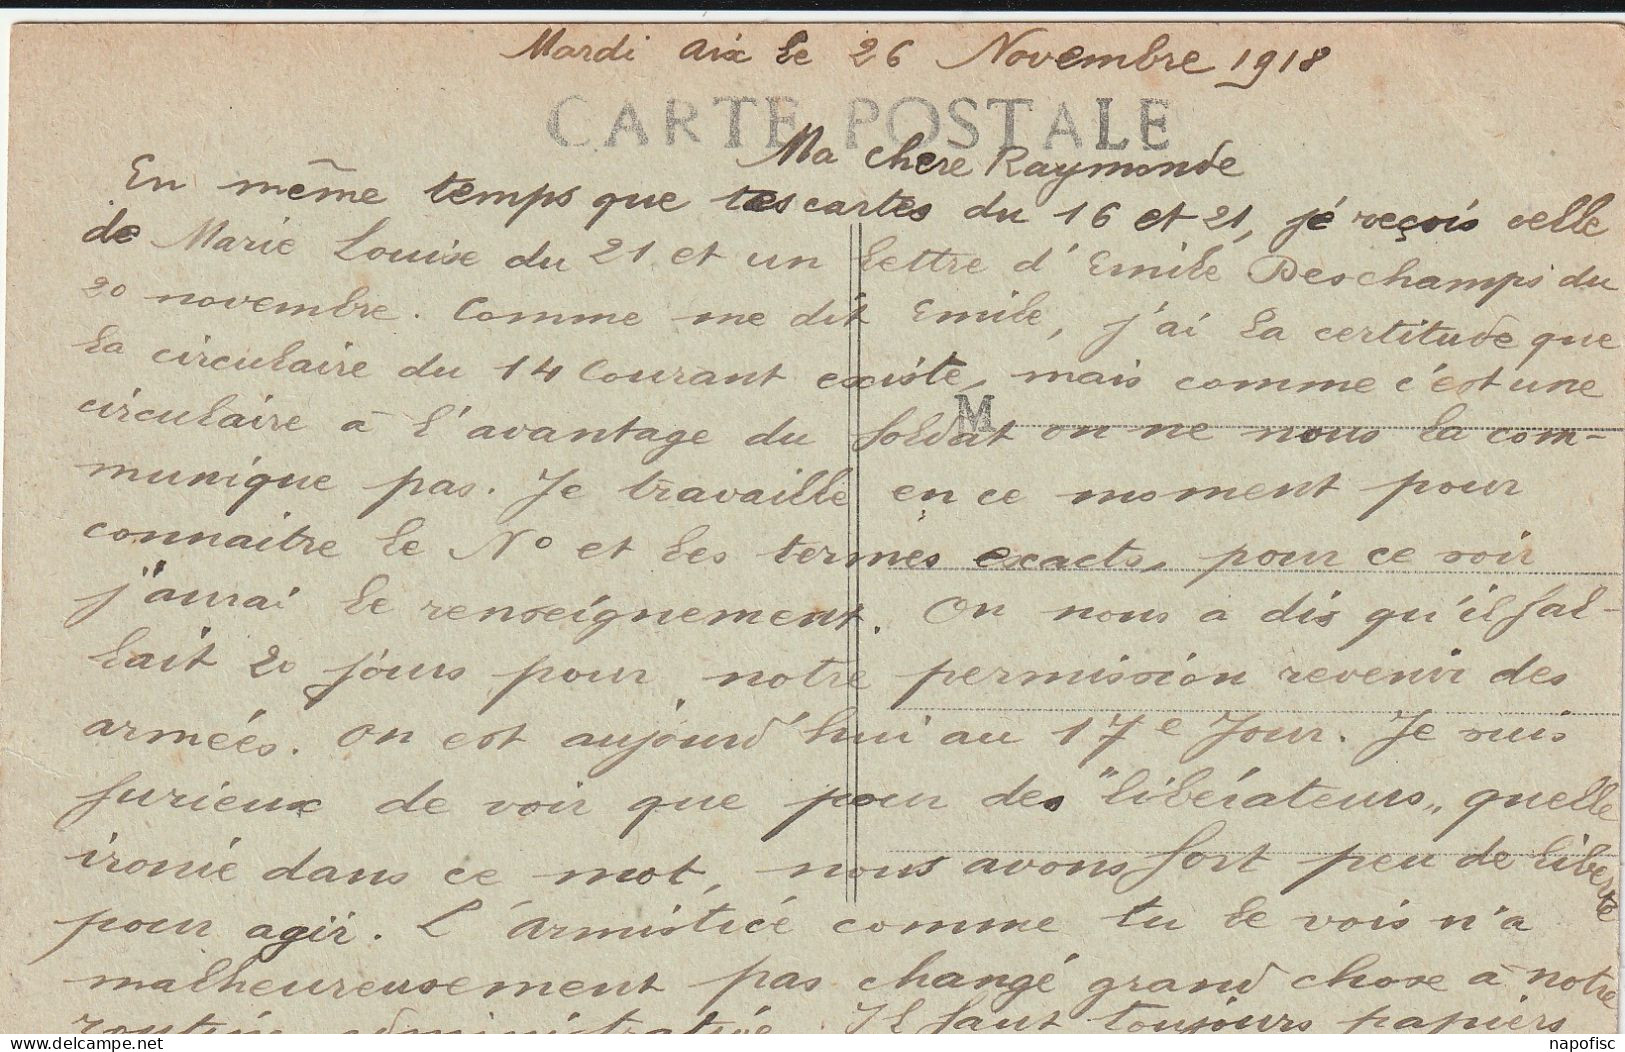 Mardi Aix le 26 Novembre 1918
CARTE POSTALE
Ma chere Raymonde
En même temps que tes cartes du 16 et 21, je reçois celle
de Marie Louise du 21 et un lettre d'Emile Deschamps du
20 novembre. Comme me dit Emile, j'ai la certitude que
la circulaire du 14 Courant existe, mais comme c'est une
circulaire à l'avantage du soldat on ne nous la com-
M
munique pas. Je travaille en ce moment pour
connaitre le No et les termes exacts, pour ce soir
j'aurai le renseignement. On nous a dis qu'il fal-
lait 20 jours pour notre permission revenir des
armées. On est aujourd'hui au 17e Jour. Je suis
furieux de voir que pour des "libérateurs„ quelle
ironie dans ce mot, nous avons fort peu de liberté
pour agir. L'armisticé comme tu le vois n'a
malheureusement pas changé grand chose à notre
routine administrative. Il faut toujours papiers
napofisc